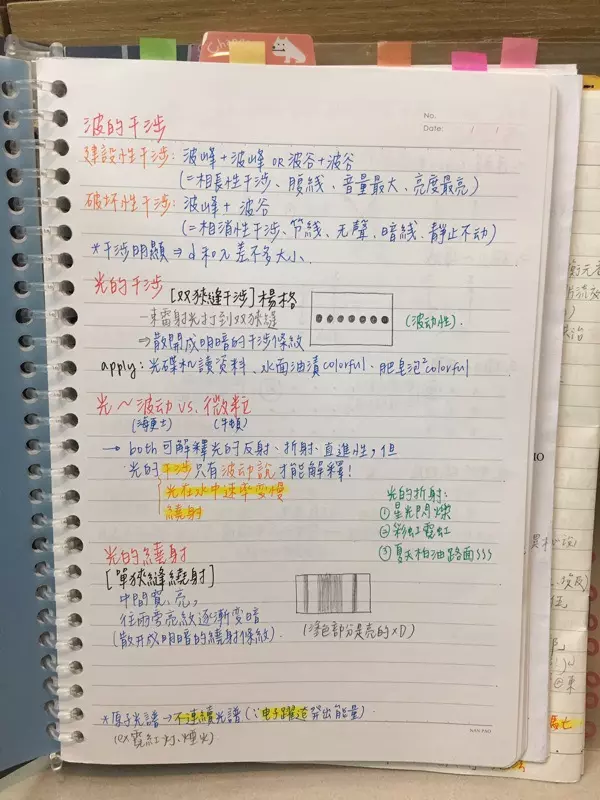 No.
Date:
波的干涉
建設性干涉: 波峰+波峰 or 波谷+波谷
(=相長性干涉、腹線、音量最大、亮度最亮)
破坏性干涉: 波峰+波谷
(=相消性干涉、节線、无聲、暗線、静止不动)
*干涉明顯⇒d和λ差不多大小.
光的干涉 [双狹縫干涉]楊格
一束雷射光打到双狹縫
→散開成明暗的干涉條紋
(波动性).
apply: 光碟机讀资料、水面油漬colorful.肥皂泡²colorful
光~波动 vs. 微粒
(海更士) (牛頓)
→ both可解釋光的反射、折射、直進性,但
光的干涉只有波动説才能解釋!
光在水中速率变慢
繞射
光的折射:
①星光閃爍
②彩虹霓虹
③夏天柏油路面
光的繞射
[單狹縫繞射]
中間寬、亮、
往兩旁亮紋逐漸变暗
(散开成明暗的繞射條紋).
(涂色部分是亮的xD)
*原子光譜→不連續光譜(∵电子躍遷釋出能量)
(ex霓紅灯、煙火)